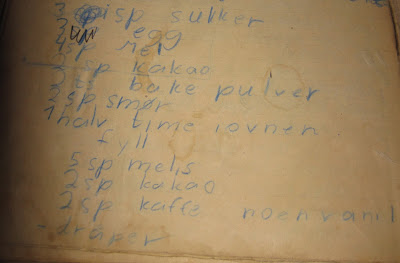 3 isp sukker
egg
sp mel
sp kakao
bake pulver
sp smør
1 halv time iovnen
fyll
5 sp melis
2 sp kakao
2 sp kaffe noenvanil
- dråper